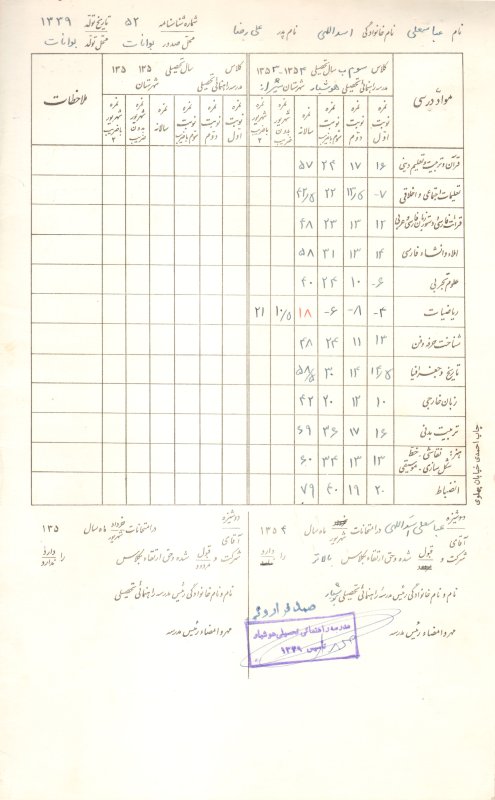 نام عباسعلی نام خانوادگی اسداللهی نام پدر علی رضا شماره شناسنامه ۵۲ تاریخ تولد ۱۳۳۹
محل صدور بوانات محل تولد بوانات
مواد درسی کلاس سوم ب سال تحصیلی ۱۳۵۳-۱۳۵۴ کلاس سال تحصیلی ۱۳۵ ۱۳۵ ملاحظات
مدرسه راهنمائی تحصیلی هوشیار شهرستان شیراز مدرسه راهنمائی تحصیلی شهرستان
نمره نوبت اول نمره نوبت دوم نمره نوبت سوم باضریب نمره سالانه نمره شهریور بدون ضریب نمره شهریور باضریب ۲ نمره نوبت اول نمره نوبت دوم نمره نوبت سوم باضریب نمره سالانه نمره شهریور بدون ضریب نمره شهریور باضریب ۲
قرآن و تربیت و تعلیم دینی ۱۶ ۱۷ ۲۴ ۵۷
تعلیمات اجتماعی و اخلاقی ۷- ۱۳/۵ ۲۲ ۴۲/۵
قرائت فارسی و دستور زبان فارسی و عربی ۱۲ ۱۳ ۲۳ ۴۸
املاء و انشاء فارسی ۱۴ ۱۳ ۳۱ ۵۸
علوم تجربی ۶- ۱۰ ۲۴ ۴۰
ریاضیات ۴- ۸- ۶- ۱۸ ۱۰/۵ ۲۱
شناخت حرفه و فن ۱۳ ۱۱ ۲۴ ۴۸
تاریخ و جغرافیا ۱۴/۵ ۱۴ ۳۰ ۵۸/۵
زبان خارجی ۱۰ ۱۲ ۲۰ ۴۲
تربیت بدنی ۱۶ ۱۷ ۳۶ ۶۹
هنر: نقاشی - خط شکل سازی - موسیقی ۱۳ ۱۳ ۳۴ ۶۰
انضباط ۲۰ ۱۹ ۴۰ ۷۹
چاپ احمدی خیابان پهلوی
دوشیزه آقای عباسعلی اسداللهی در امتحانات شهریور ماه سال ۱۳۵۴
شرکت و قبول شده وحق ارتقاء بکلاس بالاتر را دارد
نام و نام خانوادگی رئیس مدرسه راهنمائی تحصیلی هوشیار
مهر و امضاء رئیس مدرسه
مدرسه راهنمائی تحصیلی هوشیار
تأسیس ۱۳۴۹
دوشیزه آقای در امتحانات خرداد شهریور ماه سال ۱۳۵
شرکت و قبول مردود شده وحق ارتقاء بکلاس را دارد ندارد
نام و نام خانوادگی رئیس مدرسه راهنمائی تحصیلی
مهر و امضاء رئیس مدرسه